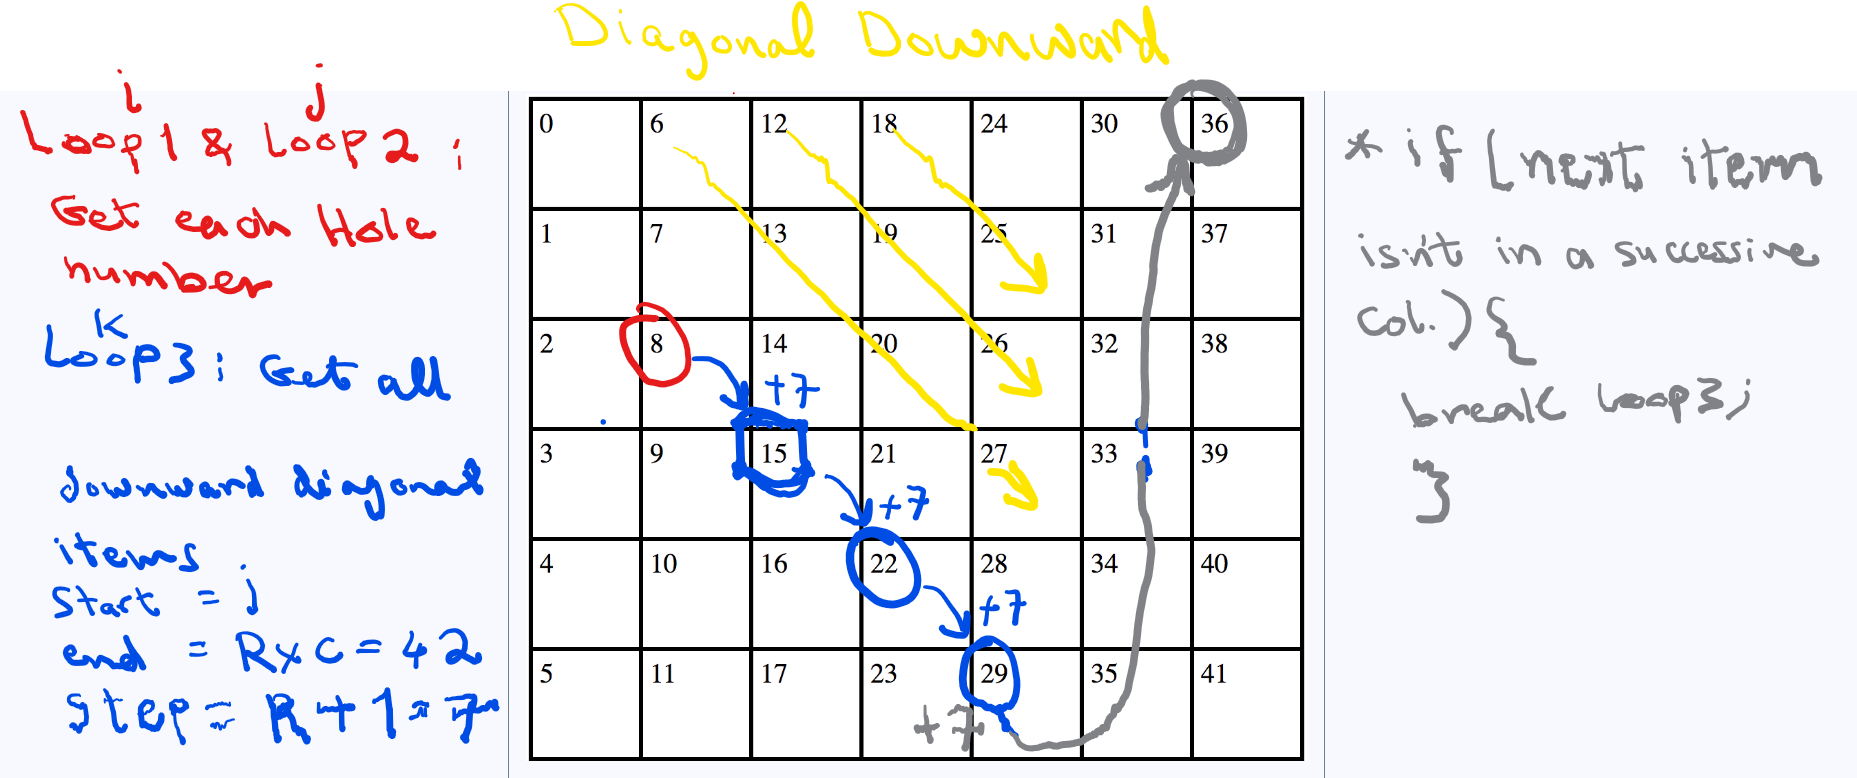 Diagonal Downward
i j
Loop1 & Loop2 :
Get each Hole
number
K
Loop3 : Get all
downward diagonal
items
Start = j
end = RxC = 42
Step = R+1=7
0 6 12 18 24 30 36
1 7 13 19 25 31 37
2 8 14 20 26 32 38
+7
3 9 15 21 27 33 39
+7
4 10 16 22 28 34 40
+7
5 11 17 23 29 35 41
+7
* if (next item
isn't in a successive
Col.) {
break Loop3;
}